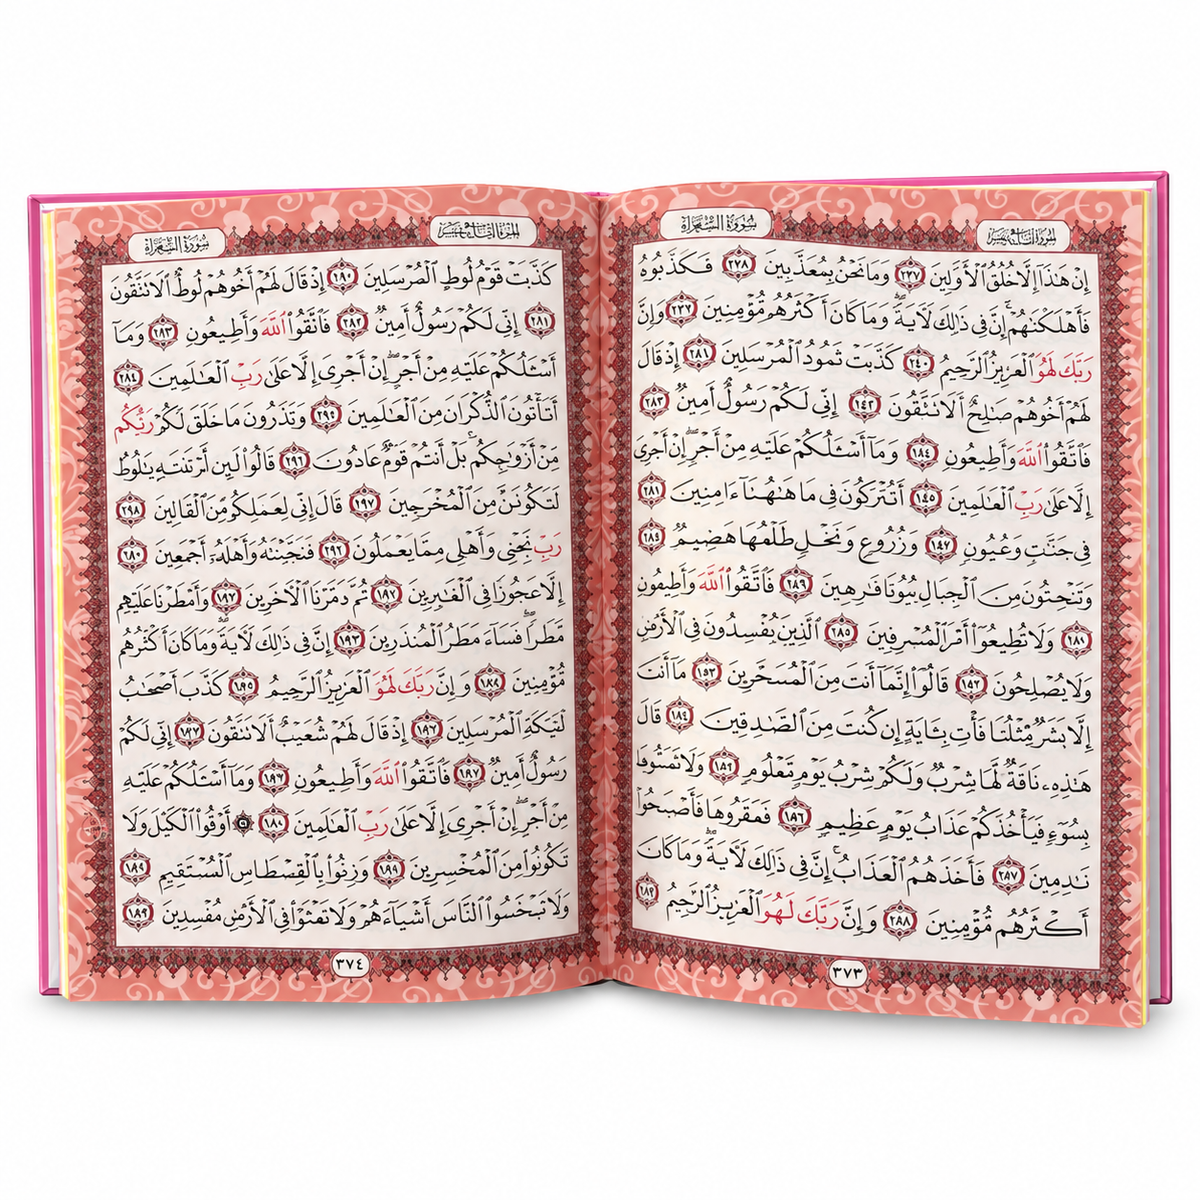 سُورَةُ الشُّعَرَاءِ
إِنْ هَٰذَا إِلَّا خُلُقُ الْأَوَّلِينَ ٢٣٧ وَمَا نَحْنُ بِمُعَذَّبِينَ ٢٣٨ فَكَذَّبُوهُ
فَأَهْلَكْنَٰهُمْ إِنَّ فِي ذَٰلِكَ لَآيَةً وَمَا كَانَ أَكْثَرُهُم مُّؤْمِنِينَ ٢٣٧ وَإِنَّ
رَبَّكَ لَهُوَ الْعَزِيزُ الرَّحِيمُ ٢٤٠ كَذَّبَتْ ثَمُودُ الْمُرْسَلِينَ ٢٨١ إِذْ قَالَ
لَهُمْ أَخُوهُمْ صَٰلِحٌ أَلَا تَتَّقُونَ ١٤٢ إِنِّي لَكُمْ رَسُولٌ أَمِينٌ ٢٨٣
فَاتَّقُوا اللَّهَ وَأَطِيعُونِ ١٨٤ وَمَا أَسْـَٔلُكُمْ عَلَيْهِ مِنْ أَجْرٍ إِنْ أَجْرِيَ
إِلَّا عَلَىٰ رَبِّ الْعَٰلَمِينَ ١٤٥ أَتُتْرَكُونَ فِي مَا هَٰهُنَا ءَامِنِينَ ٢٨١
فِي جَنَّٰتٍ وَعُيُونٍ ١٤٧ وَزُرُوعٍ وَنَخْلٍ طَلْعُهَا هَضِيمٌ ٢٨٤
وَتَنْحِتُونَ مِنَ الْجِبَالِ بُيُوتًا فَٰرِهِينَ ٢٨٩ فَاتَّقُوا اللَّهَ وَأَطِيعُونِ
٢٨١ وَلَا تُطِيعُوا أَمْرَ الْمُسْرِفِينَ ٢٨٥ الَّذِينَ يُفْسِدُونَ فِي الْأَرْضِ
وَلَا يُصْلِحُونَ ١٥٢ قَالُوا إِنَّمَا أَنتَ مِنَ الْمُسَحَّرِينَ ١٥٣ مَا أَنتَ
إِلَّا بَشَرٌ مِّثْلُنَا فَأْتِ بِـَٔايَةٍ إِن كُنتَ مِنَ الصَّٰدِقِينَ ١٨٤ قَالَ
هَٰذِهِ نَاقَةٌ لَّهَا شِرْبٌ وَلَكُمْ شِرْبُ يَوْمٍ مَّعْلُومٍ ١٨٩ وَلَا تَمَسُّوهَا
بِسُوٓءٍ فَيَأْخُذَكُمْ عَذَابُ يَوْمٍ عَظِيمٍ ١٨٦ فَعَقَرُوهَا فَأَصْبَحُوا
نَٰدِمِينَ ٢٨٧ فَأَخَذَهُمُ الْعَذَابُ إِنَّ فِي ذَٰلِكَ لَآيَةً وَمَا كَانَ
أَكْثَرُهُم مُّؤْمِنِينَ ٢٨٨ وَإِنَّ رَبَّكَ لَهُوَ الْعَزِيزُ الرَّحِيمُ ٢٨٩
٣٧٣
سُورَةُ الشُّعَرَاءِ
كَذَّبَتْ قَوْمُ لُوطٍ الْمُرْسَلِينَ ٢٩٠ إِذْ قَالَ لَهُمْ أَخُوهُمْ لُوطٌ أَلَا تَتَّقُونَ
٢٨١ إِنِّي لَكُمْ رَسُولٌ أَمِينٌ ٢٨٢ فَاتَّقُوا اللَّهَ وَأَطِيعُونِ ٢٨٣ وَمَا
أَسْـَٔلُكُمْ عَلَيْهِ مِنْ أَجْرٍ إِنْ أَجْرِيَ إِلَّا عَلَىٰ رَبِّ الْعَٰلَمِينَ ٢٨٤
أَتَأْتُونَ الذُّكْرَانَ مِنَ الْعَٰلَمِينَ ٢٩٠ وَتَذَرُونَ مَا خَلَقَ لَكُمْ رَبُّكُم
مِنْ أَزْوَٰجِكُم بَلْ أَنتُمْ قَوْمٌ عَادُونَ ٢٩٦ قَالُوا لَئِن لَّمْ تَنتَهِ يَٰلُوطُ
لَتَكُونَنَّ مِنَ الْمُخْرَجِينَ ٢٩٧ قَالَ إِنِّي لِعَمَلِكُم مِّنَ الْقَالِينَ ٢٩٨
رَبِّ نَجِّنِي وَأَهْلِي مِمَّا يَعْمَلُونَ ٢٩٢ فَنَجَّيْنَٰهُ وَأَهْلَهُ أَجْمَعِينَ ٢٨٠
إِلَّا عَجُوزًا فِي الْغَٰبِرِينَ ١٩٧ ثُمَّ دَمَّرْنَا الْآخَرِينَ ١٩٢ وَأَمْطَرْنَا عَلَيْهِم
مَّطَرًا فَسَاءَ مَطَرُ الْمُنذَرِينَ ١٩٣ إِنَّ فِي ذَٰلِكَ لَآيَةً وَمَا كَانَ أَكْثَرُهُم
مُّؤْمِنِينَ ١٨٤ وَإِنَّ رَبَّكَ لَهُوَ الْعَزِيزُ الرَّحِيمُ ١٩٥ كَذَّبَ أَصْحَٰبُ
لْـَٔيْكَةِ الْمُرْسَلِينَ ١٩٦ إِذْ قَالَ لَهُمْ شُعَيْبٌ أَلَا تَتَّقُونَ ١٩٧ إِنِّي لَكُمْ
رَسُولٌ أَمِينٌ ١٩٧ فَاتَّقُوا اللَّهَ وَأَطِيعُونِ ١٩٦ وَمَا أَسْـَٔلُكُمْ عَلَيْهِ
مِنْ أَجْرٍ إِنْ أَجْرِيَ إِلَّا عَلَىٰ رَبِّ الْعَٰلَمِينَ ١٨٠ أَوْفُوا الْكَيْلَ وَلَا
تَكُونُوا مِنَ الْمُخْسِرِينَ ١٩٩ وَزِنُوا بِالْقِسْطَاسِ الْمُسْتَقِيمِ ١٨٩
وَلَا تَبْخَسُوا النَّاسَ أَشْيَاءَهُمْ وَلَا تَعْثَوْا فِي الْأَرْضِ مُفْسِدِينَ ١٨٩
٣٧٤